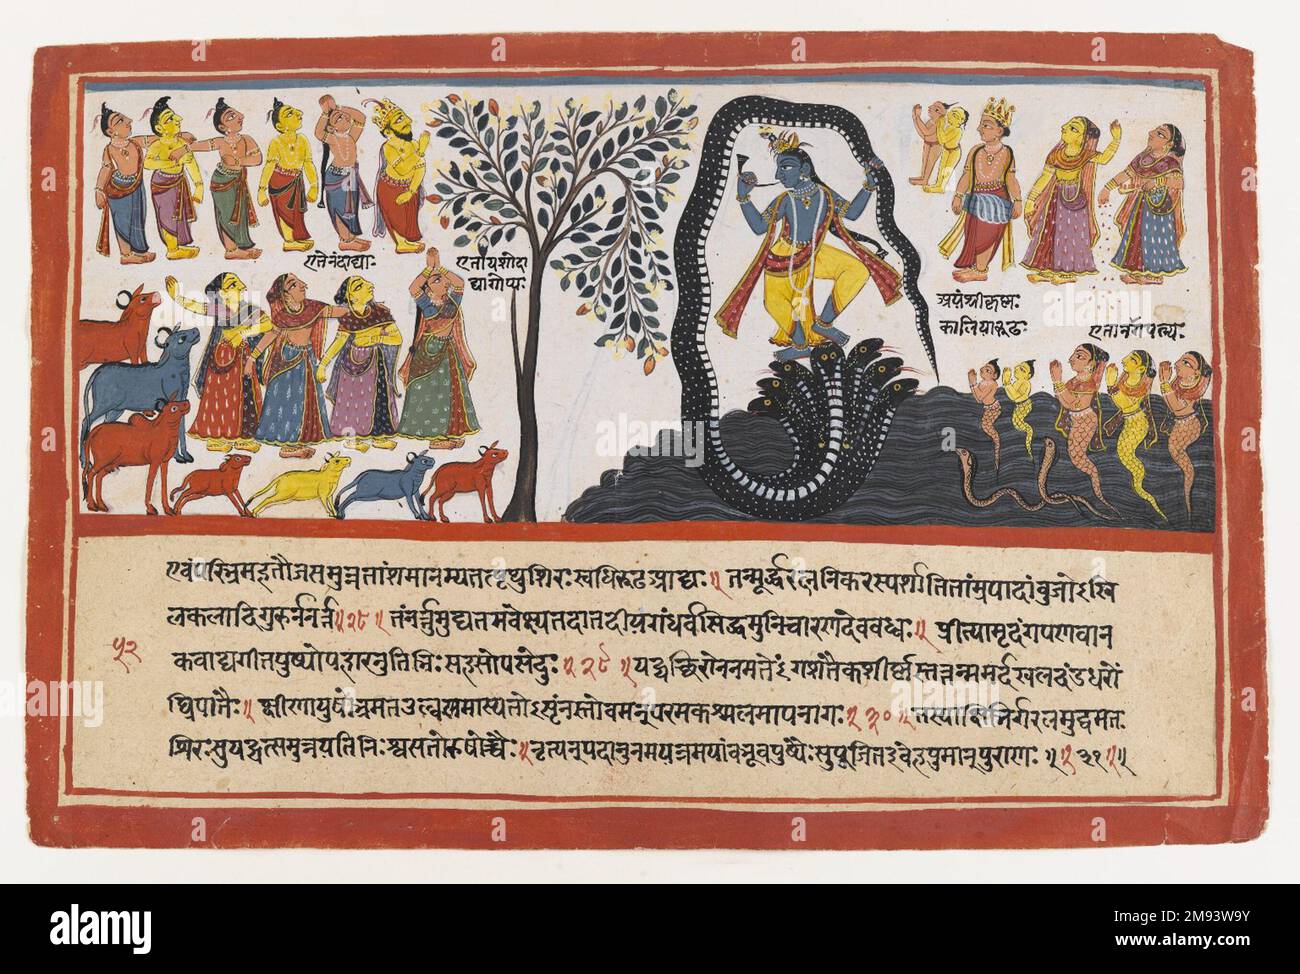 एतेनंदाद्याः
एतायशोदा
द्यागोप्यः
अयंश्रीकृष्णः
कालियारूढः
एतानागपत्न्यः
एवंपरिभ्रमहतौजसमुन्नतांशमानम्यतत्पृथुशिरःस्वधिरूढआद्यः॥ तन्मूर्द्धरत्ननिकरस्पर्शातितांम्रपादांबुजोऽखि
लकलादिगुरुर्ननर्त्त॥२८॥ तंनर्त्तुमुद्यतमवेक्ष्यतदातदीयगंधर्वसिद्धमुनिचारणदेववध्वः॥ प्रीत्यामृदंगपणवान
५२
कवाद्यगीतपुष्पोपहारनुतिभिःसहसोपसेदुः॥२९॥ यद्यच्छिरोननमतेंऽगशतैकशीर्ष्णस्तत्तन्ममर्दखलदंडधरों
घ्रिपातैः॥ क्षीणायुषोभ्रमतउल्बणमास्यतोऽसृंनस्तोवमन्परमकश्मलमापनागः॥३०॥ तस्याक्षिभिर्गरलमुद्वमतः
शिरःसुयद्यत्समुन्नमतिनिःश्वसतोरुषोच्चैः॥ नृत्यन्पदानुनमयन्नमयांबभूवपुष्पैःसुपूजितइवेहपुमान्पुराणः॥३१॥
alamy
Image ID: 2M93W9Y
www.alamy.com